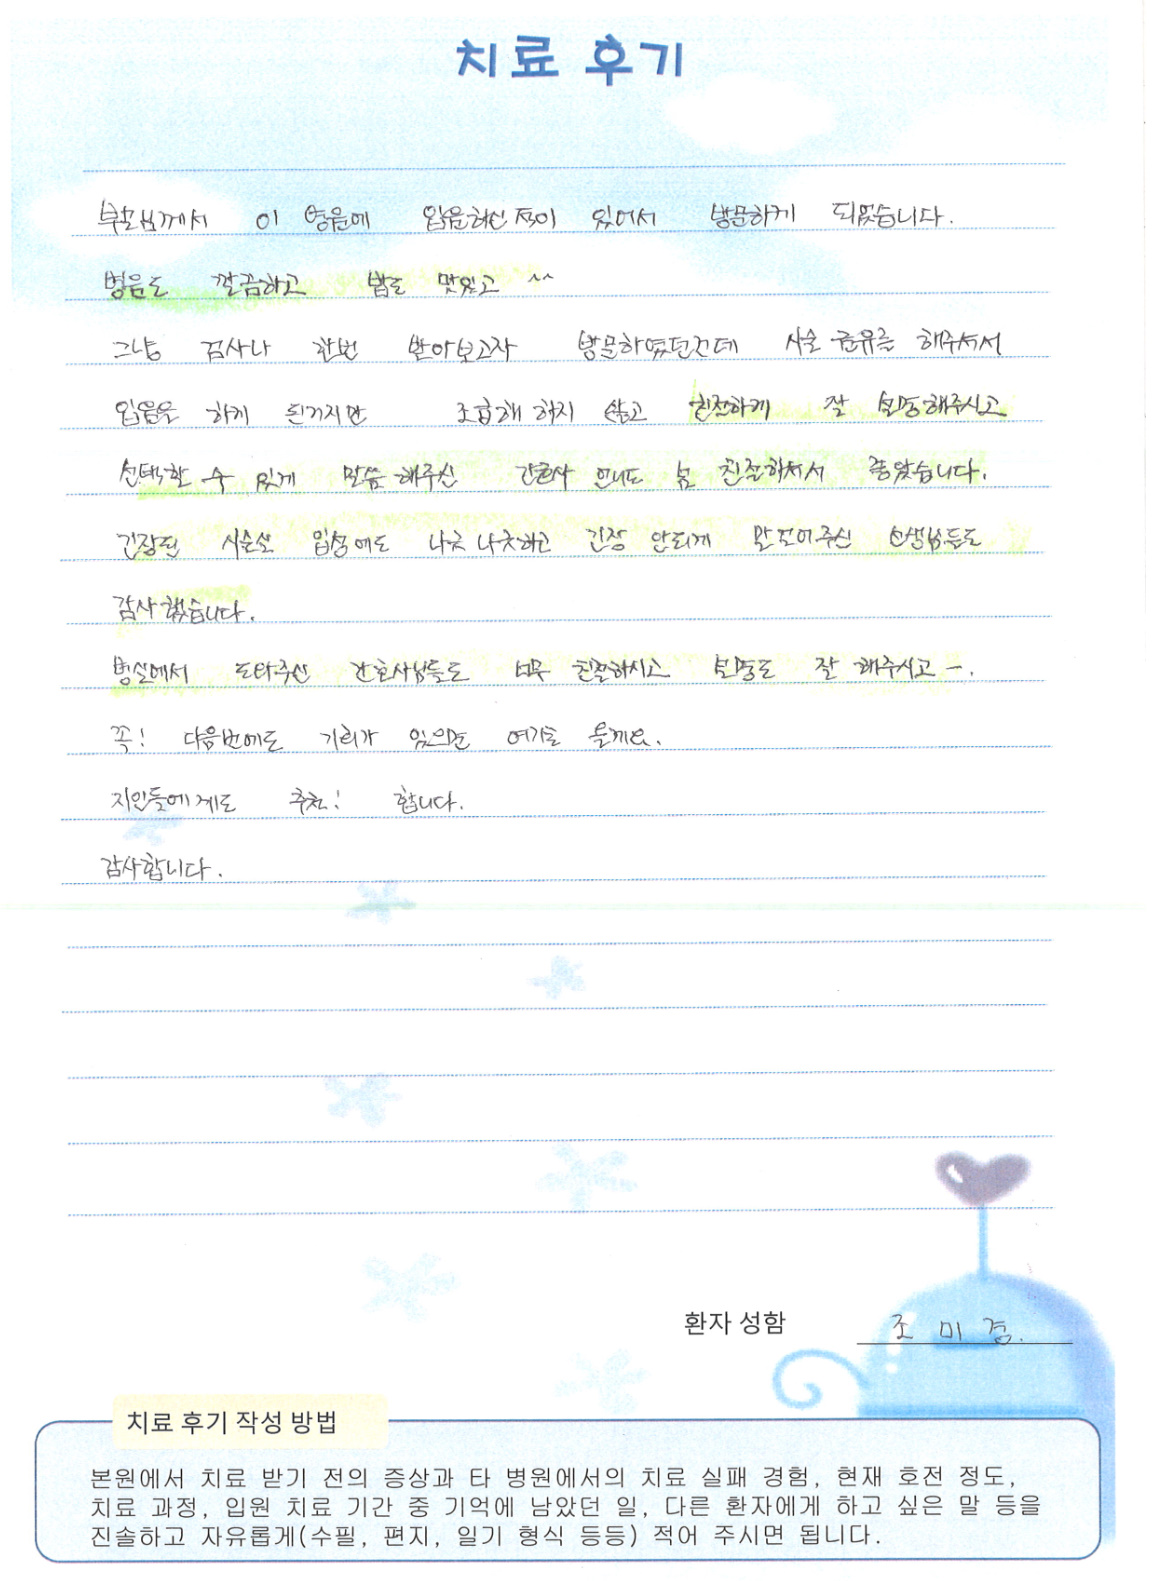 치료 후기
부모님께서 이 병원에 입원하신 적이 있어서 방문하게 되었습니다.
병원도 깔끔하고 밥도 맛있고 ^^
그냥 검사나 한번 받아보고자 방문하였던건데 시술 권유를 해주셔서
입원을 하게 된거지만 조급해 하지 않고 친절하게 잘 설명해주시고
선택할 수 있게 말씀 해주신 간호사 언니도 넘 친절하셔서 좋았습니다.
긴장된 시술실 입성에도 나긋나긋하고 긴장 안되게 말걸어주신 선생님들도
감사했습니다.
병실에서 도와주신 간호사님들도 너무 친절하시고 설명도 잘 해주시고 -.
꼭! 다음번에도 기회가 있으면 여기로 올께요.
지인들에게도 추천! 합니다.
감사합니다.
환자 성함 조 미 경.
치료 후기 작성 방법
본원에서 치료 받기 전의 증상과 타 병원에서의 치료 실패 경험, 현재 호전 정도,
치료 과정, 입원 치료 기간 중 기억에 남았던 일, 다른 환자에게 하고 싶은 말 등을
진솔하고 자유롭게(수필, 편지, 일기 형식 등등) 적어 주시면 됩니다.